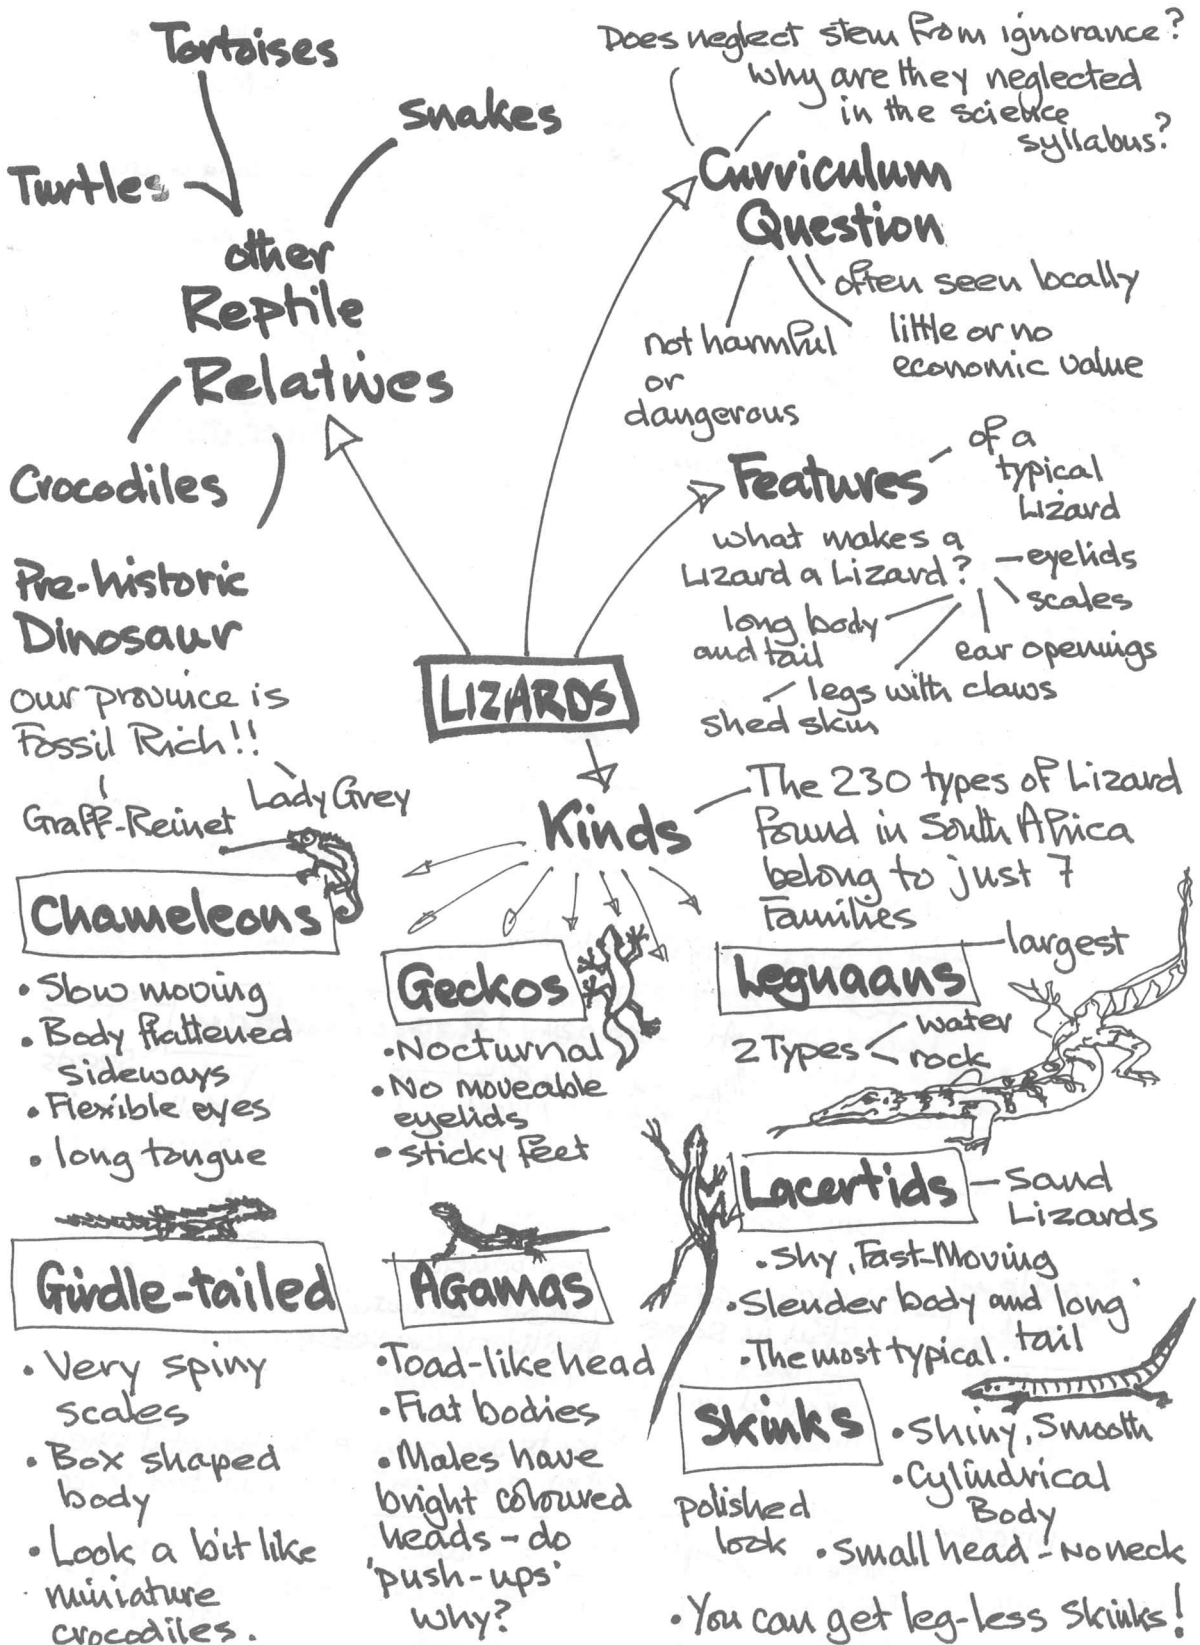 Tortoises
Snakes
Turtles
other
Reptile
Relatives
Crocodiles
Pre-historic
Dinosaur
our province is
Fossil Rich!!
Graff-Reinet
Lady Grey
Does neglect stem from ignorance?
why are they neglected
in the science
syllabus?
Curriculum
Question
often seen locally
little or no
economic value
not harmful
or
dangerous
Features
of a
typical
Lizard
what makes a
Lizard a Lizard?
eyelids
scales
ear openings
legs with claws
long body
and tail
shed skin
LIZARDS
Kinds
The 230 types of Lizard
found in South Africa
belong to just 7
Families
Chameleons
• Slow moving
• Body flattened
sideways
• Flexible eyes
• long tongue
Geckos
• Nocturnal
• No moveable
eyelids
• sticky feet
Leguaans
largest
2 Types
water
rock
Lacertids
Sand
Lizards
• Shy, Fast-Moving
• Slender body and long
tail
• The most typical.
Girdle-tailed
• Very spiny
scales
• Box shaped
body
• Look a bit like
miniature
crocodiles.
Agamas
• Toad-like head
• Flat bodies
• Males have
bright coloured
heads - do
'push-ups'
why?
Skinks
• Shiny, Smooth
• Cylindrical
Body
polished
look
• Small head - No neck
• You can get leg-less skinks!